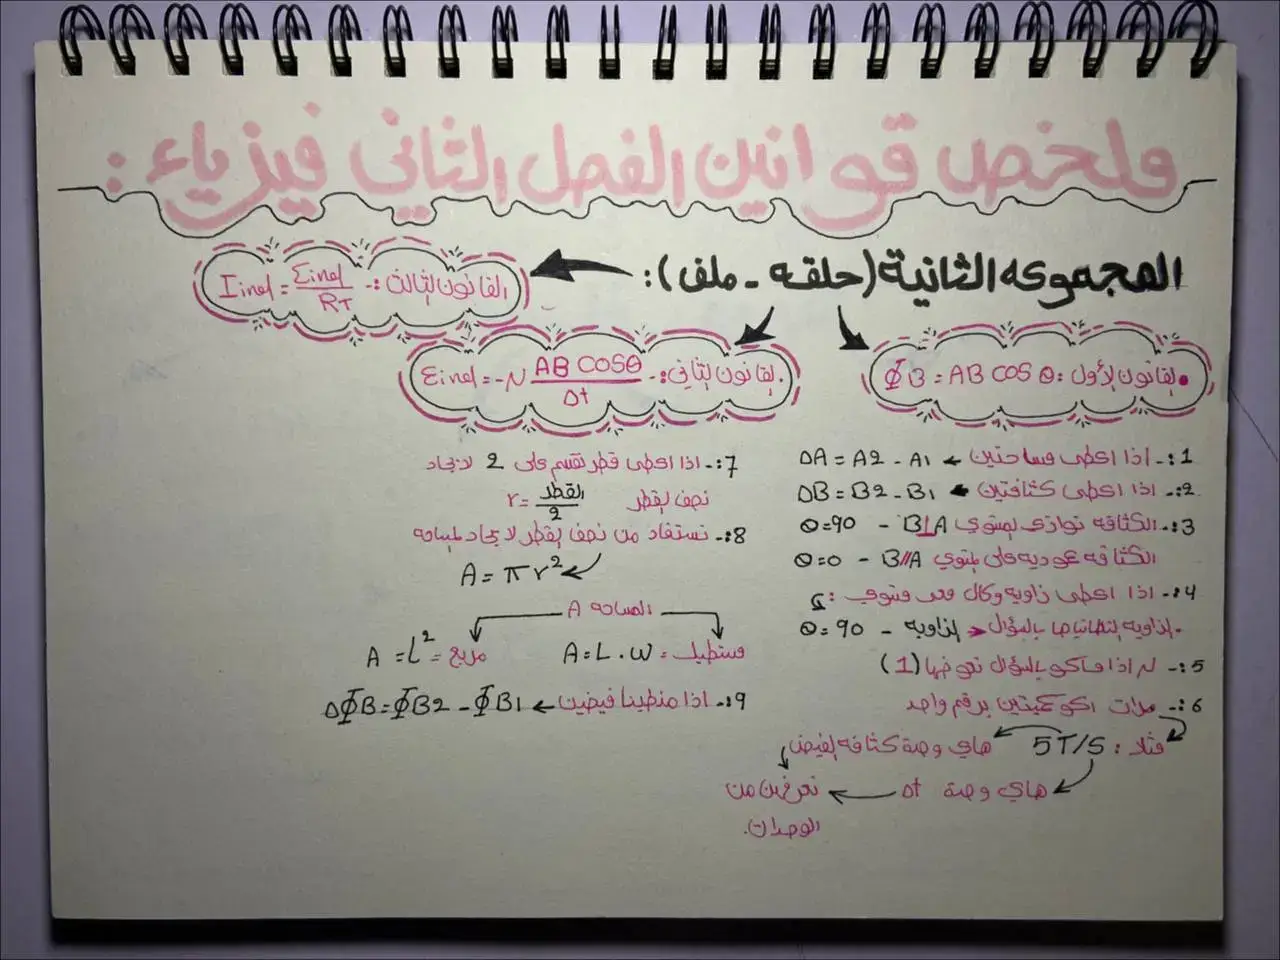 ملخص قوانين الفصل الثاني فيزياء :
المجموعه الثانية (حلقه - ملف) :
القانون الأول : ΦB = AB COS θ
القانون الثاني :- Ɛind = -N AB COSθ / Δt
القانون الثالث :- Iind = Ɛind / RT
1:- اذا اعطى مساحتين ← ΔA = A2 - A1
2:- اذا اعطى كثافتين ← ΔB = B2 - B1
3:- الكثافه توازي المستوي B⊥A - θ=90
الكثافه عموديه على المستوي B//A - θ=0
4:- اذا اعطى زاويه وكال مع مستوي :
الزاويه النطانياها بالسؤال ← الزاويه - θ= 90
5:- N اذا ماكو بالسؤال نعوضها (1)
6:- مرات اكو كميتين برقم واحد
مثلا : 5T/S هاي وحدة كثافه الفيض
هاي وحدة Δt ← نعرفهن من
الوحدات.
7:- اذا اعطى قطر نقسم على 2 لايجاد
نصف القطر r = القطر / 2
8:- نستفاد من نصف القطر لايجاد المساحه
A = π r²
المساحه A
مستطيل = A = L . W مربع = A = L²
9:- اذا منطينا فيضين ← ΔΦB = ΦB2 - ΦB1